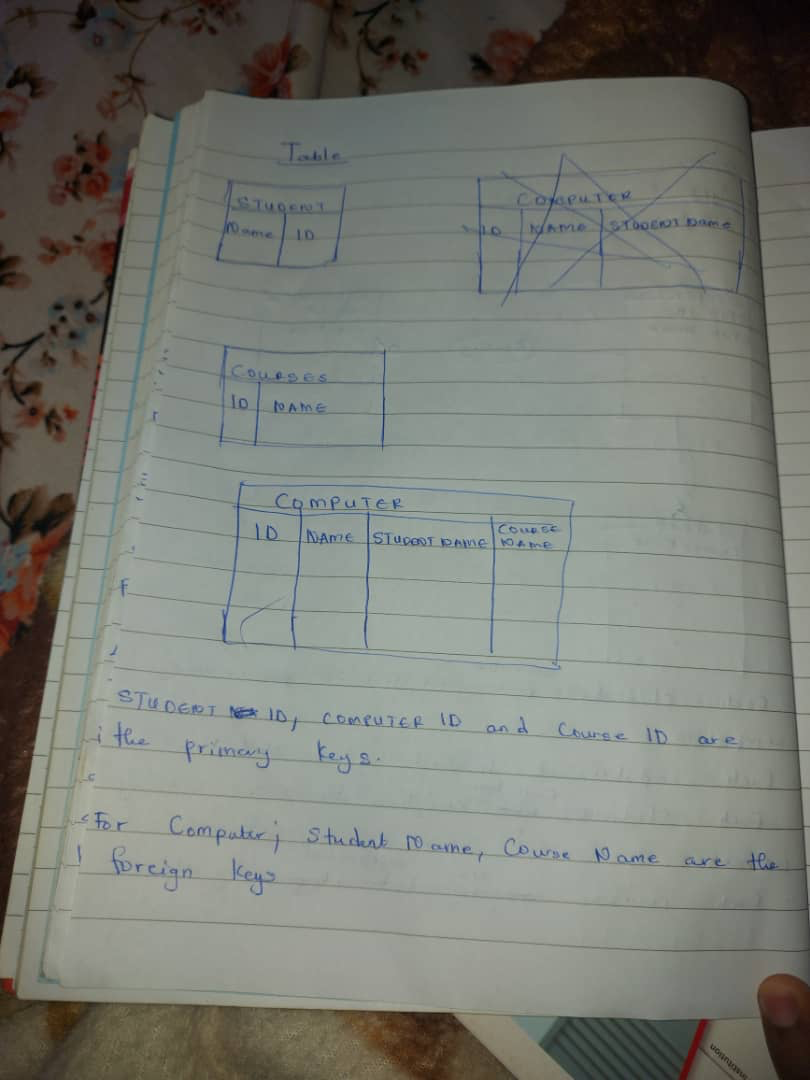 Table
STUDENT
Name ID
COMPUTER
ID NAME STUDENT Name
COURSES
ID NAME
COMPUTER
ID NAME STUDENT NAME COURSE
NAME
STUDENT ID, COMPUTER ID and Course ID are
the primary keys.
For Computer; Student Name, Course Name are the
foreign keys
institution